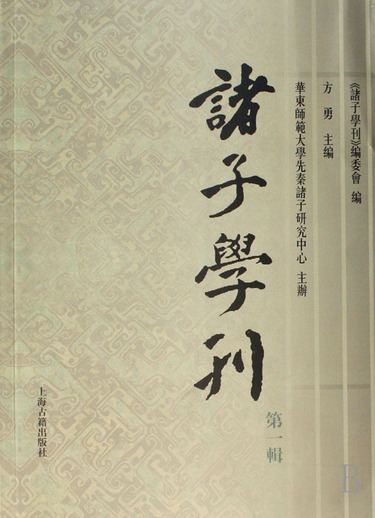 《諸子學刊》編委會 編
方勇 主編
華東師範大學先秦諸子研究中心 主辦
諸子學刊
第一輯
上海古籍出版社
B